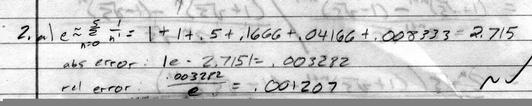 2. a) e ≈ 5 Σ n=0 1/n! = 1 + 1 + .5 + .1666 + .04166 + .008333 = 2.715
abs error: |e - 2.715| = .003282
rel error: .003282/e = .001207